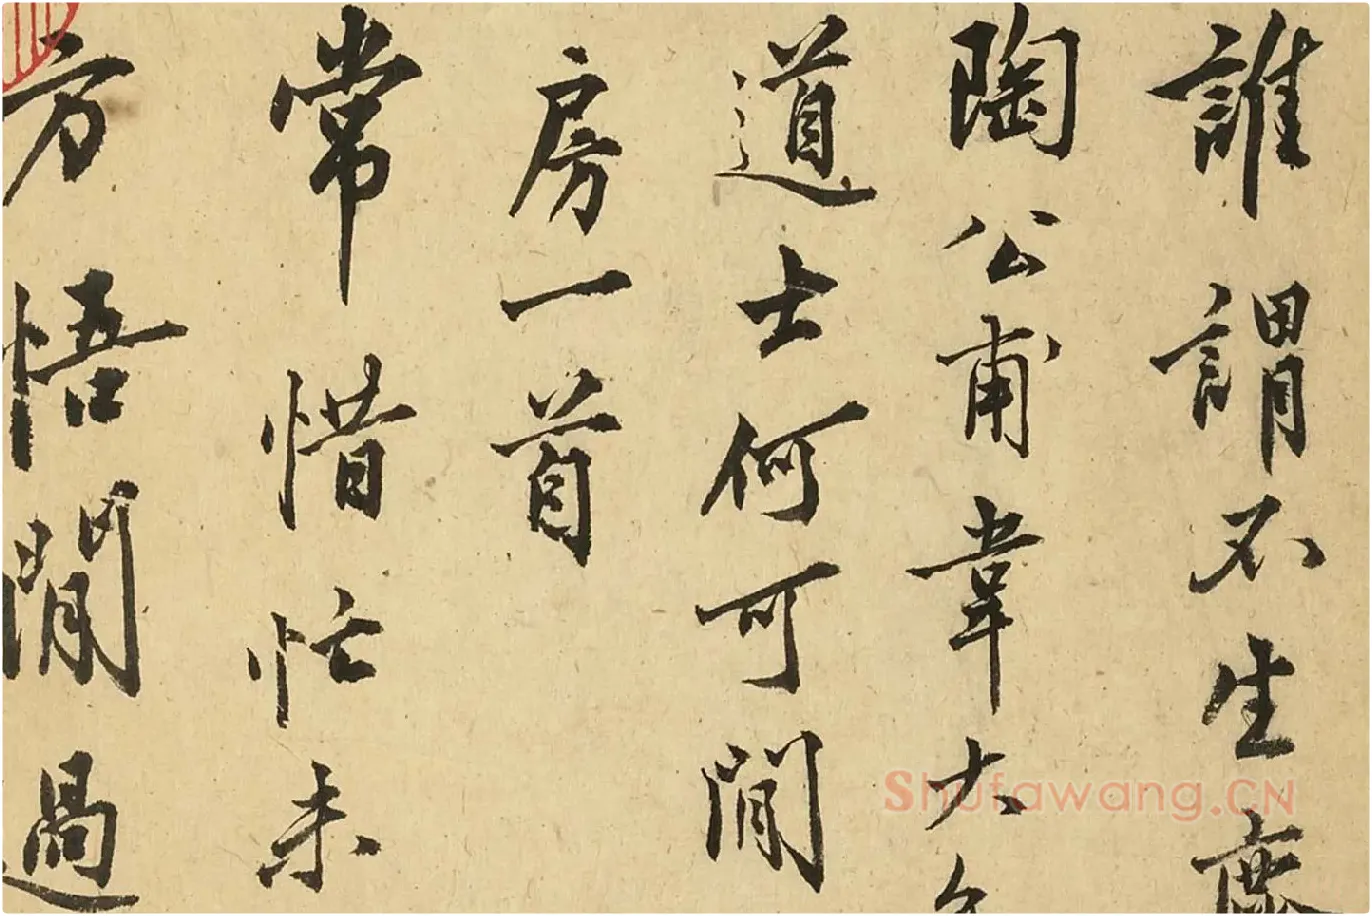 誰謂不生
陶公甫韋大
道士何可閒
房一首
常惜忙未
方悟閒過
Shufawang.CN